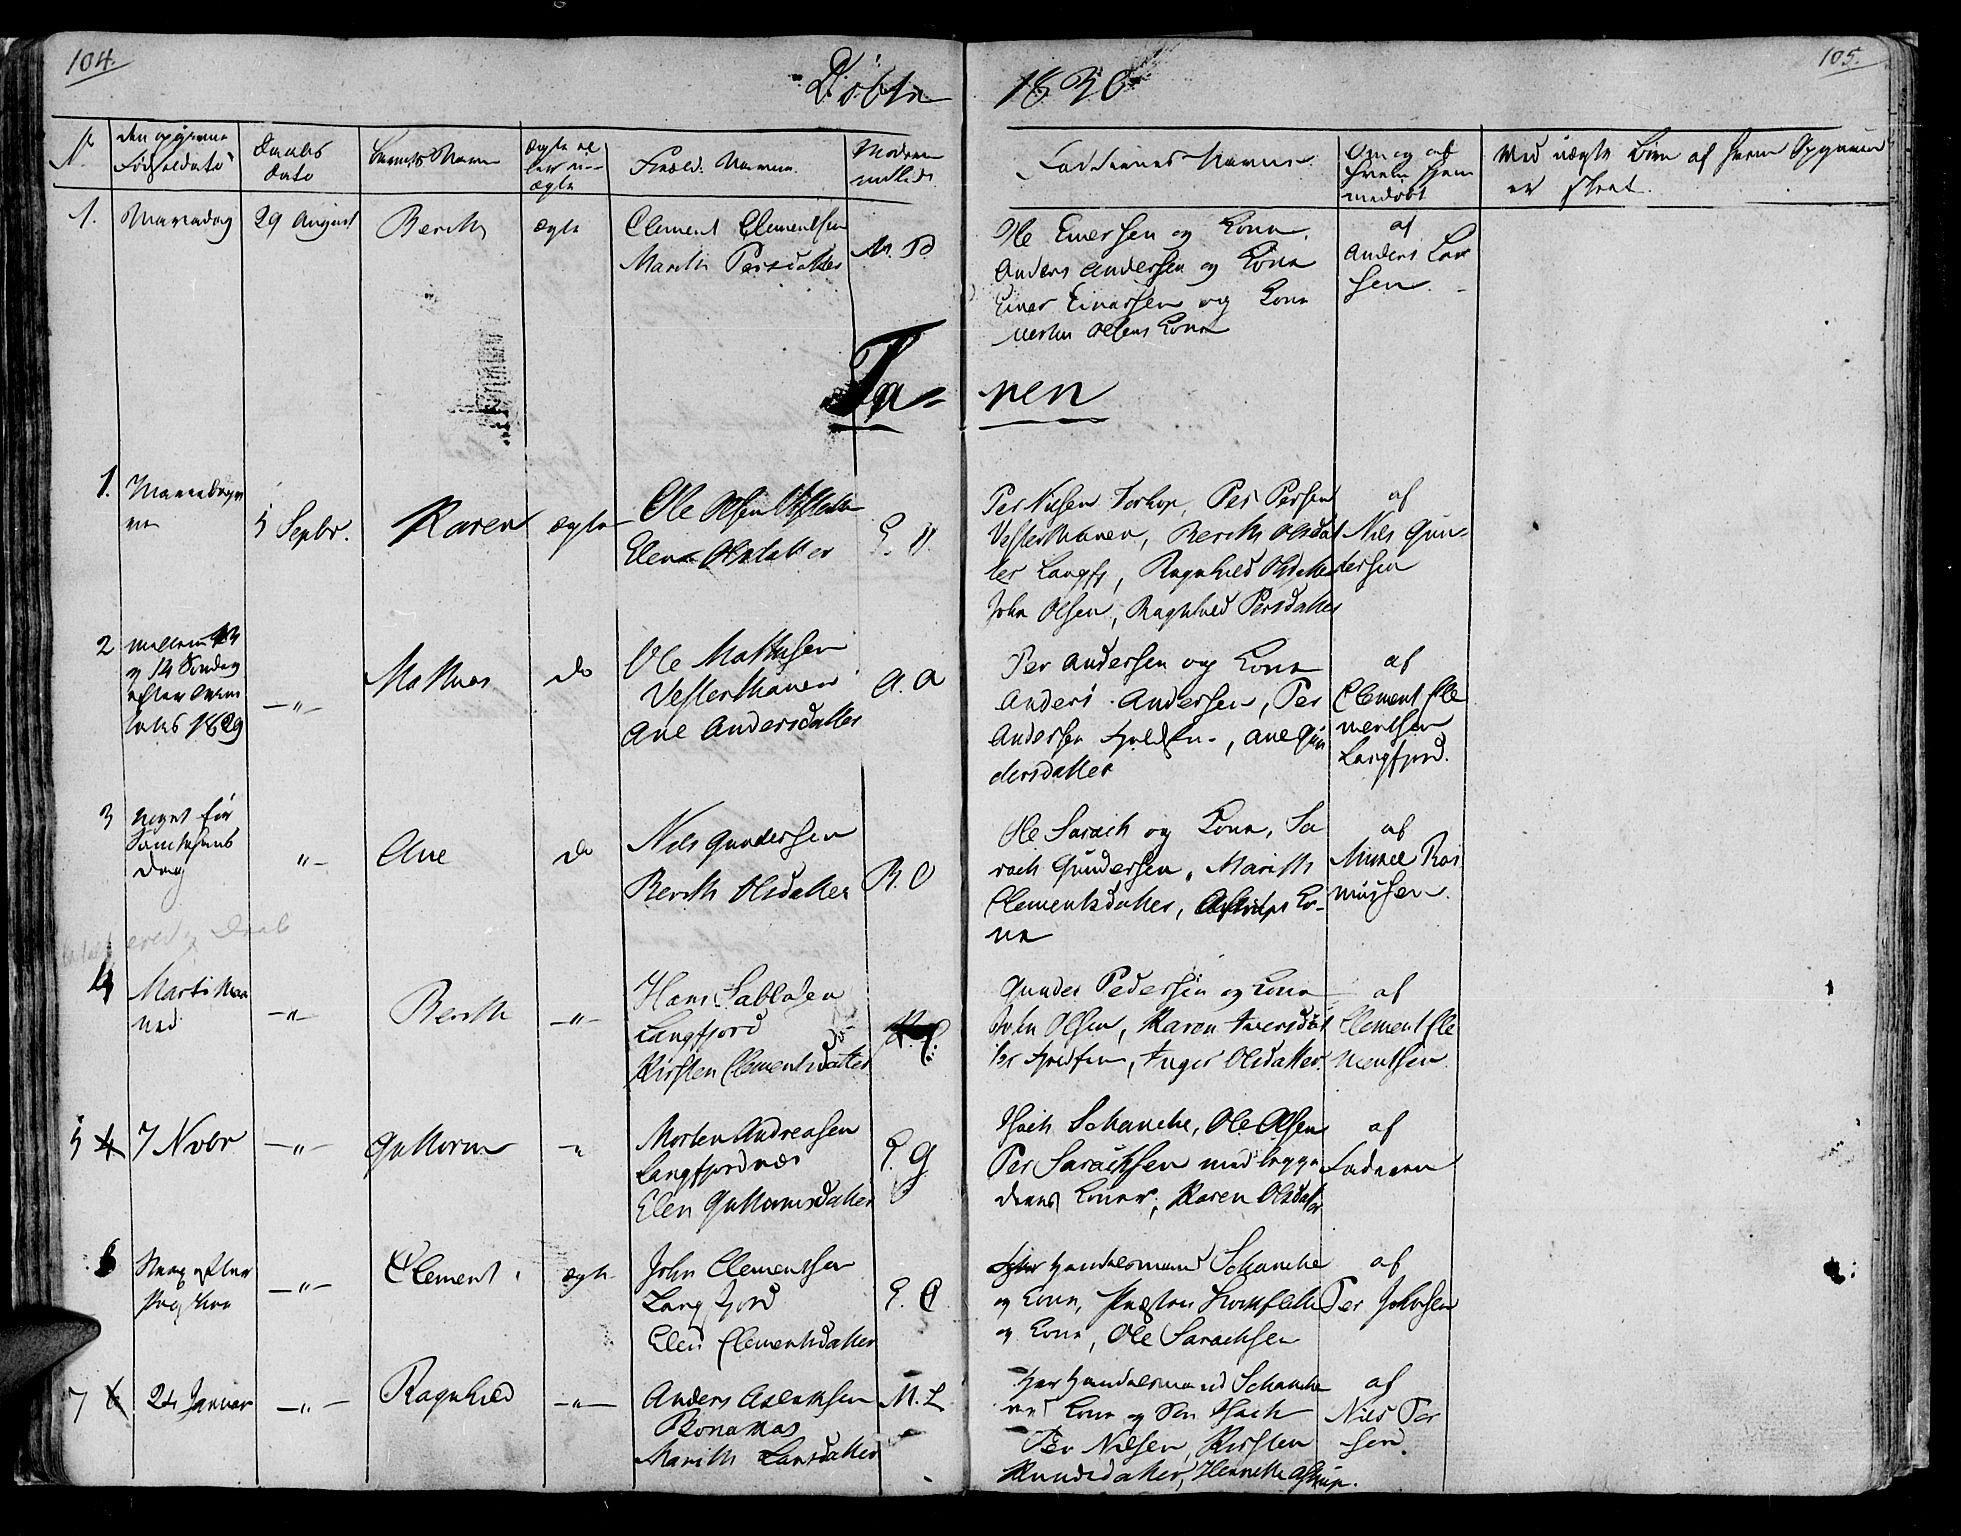 104.
105.
Døbte
1830
N.
den opgivne
Fødselsdato
Daabs
dato
Barnets Navn
ægte el
ler u-
ægte
Foræld. Navne.
Moderen
indledt
Faddernes Navne
Om og af
hvem hjem
medøbt
Ved uægte Børn af hvem Opgaven
er skeet.
1.
Mariadag
29 August
Berith
ægte
Clement Clementsen
Marith Persdatter
M. P.
Ole Einersen og Kone,
Anders Andersen og Kone
Einer Einersen og Kone
Olsens Kone
af
Anders Lar
sen.
Ta=
nen
1.
5 Sepbr.
Karen
ægte
Ole Olsen
Elen Olsdatter
E. O.
Per Nielsen Torhop, Per Persen
Vestertanen, Berith Olsdat
ter Langfj, Ragnhild Olsdatter
John Olsen, Ragnhild Persdatter
af
Nils Gun-
dersen
2
mellem 13
og 14 Søndag
efter
1829
—"—
Mathis
do
Ole Mathisen
Vestertanen
Ane Andersdatter
A. A
Per Andersen og Kone
Anders Andersen, Per
Andersen, Ane Gun
dersdatter
af
Clement Cle
mentsen
Langfjord.
3
noget før
St.Hans
dag
"—
Ane
do
Nils Gundersen
Berith Olsdatter
B. O
Ole Sarach og Kone, Sa
rach Gundersen, Marith
Clementsdatter, Astrups Ko-
ne
af
Mikkel Ras
mussen.
Daab
4
Marti Maa
ned
—"—
Berith
—"—
Hans
Langfjord
Kirsten Clementsdatter
Gunder Pedersen og Kone
John Olsen, Karen Iversdat
ter, Inger Olsdatter.
af
Clement Cle
mentsen
5
7 Novbr
—"—
Guttorm
"
Morten Andreasen
Langfjordnæs
Elen Guttormsdatter
E. G
Isach Schanche, Ole Olsen
Per Sarachsen med begge
deres Koner, Karen Olsdatter
af
Faderen
6
Strax efter
Paaske
—"—
Clement
ægte
John Clementsen
Langfjord
Elen Clementsdatter
E. C
Handelsmand Schanche
og Kone, Præsten Stockfleth
og Kone, Ole Sarachsen
af
Per Johnsen
7
24 Januar
—"—
Ragnhild
—"—
Anders Aslaksen
Bonakas
Marith Larsdatter
M. L
Hr Handelsmand Schanche
med Kone og Søn Isach
Per Nilsen, Kirsten
Knudsdatter, Henrikke Astrup.
af
Nils Per
sen.